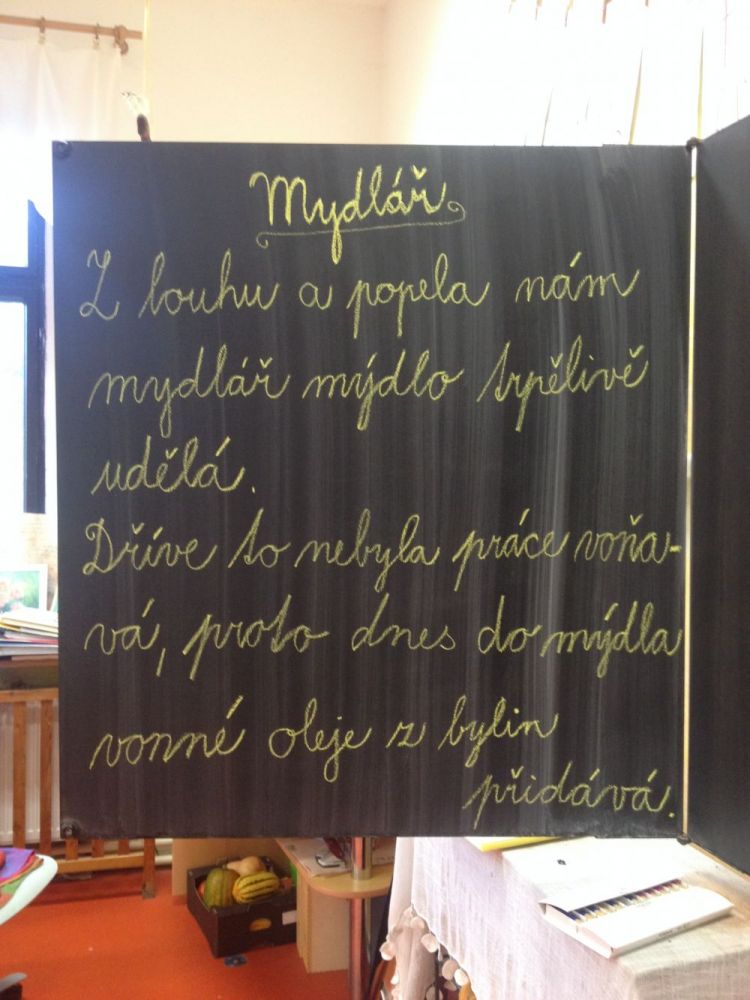 Mydlář
Z louhu a popela nám
mydlář mýdlo trpělivě
udělá.
Dříve to nebyla práce voňa-
vá, proto dnes do mýdla
vonné oleje z bylin
přidává.